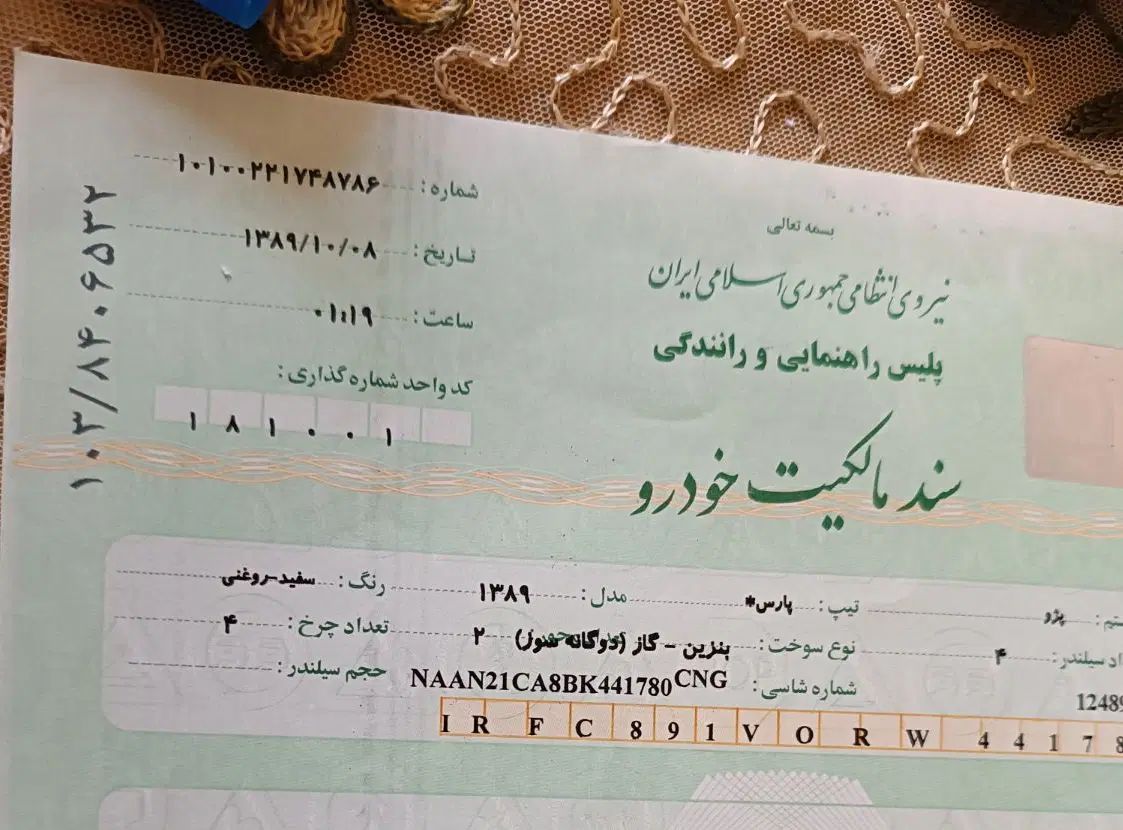 بسمه تعالی
نیروی انتظامی جمهوری اسلامی ایران
پلیس راهنمایی و رانندگی
سند مالکیت خودرو
شماره: ۱۰۱۰۰۲۲۱۷۴۸۷۸۶
تاریخ: ۱۳۸۹/۱۰/۰۸
ساعت: ۰۱:۱۹
کد واحد شماره گذاری:
۱ ۸ ۱ ۰ ۰ ۱
۱۰۳/۸۴۰۶۵۳۲
پژو تیپ: پارس* مدل: ۱۳۸۹ رنگ: سفید-روغنی
سیلندر: ۴ نوع سوخت: بنزین - گاز (دوگانه سوز) ۲ تعداد چرخ: ۴
شماره شاسی: NAAN21CA8BK441780 CNG حجم سیلندر:
12489
I R F C 8 9 1 V O R W 4 4 1 7 8